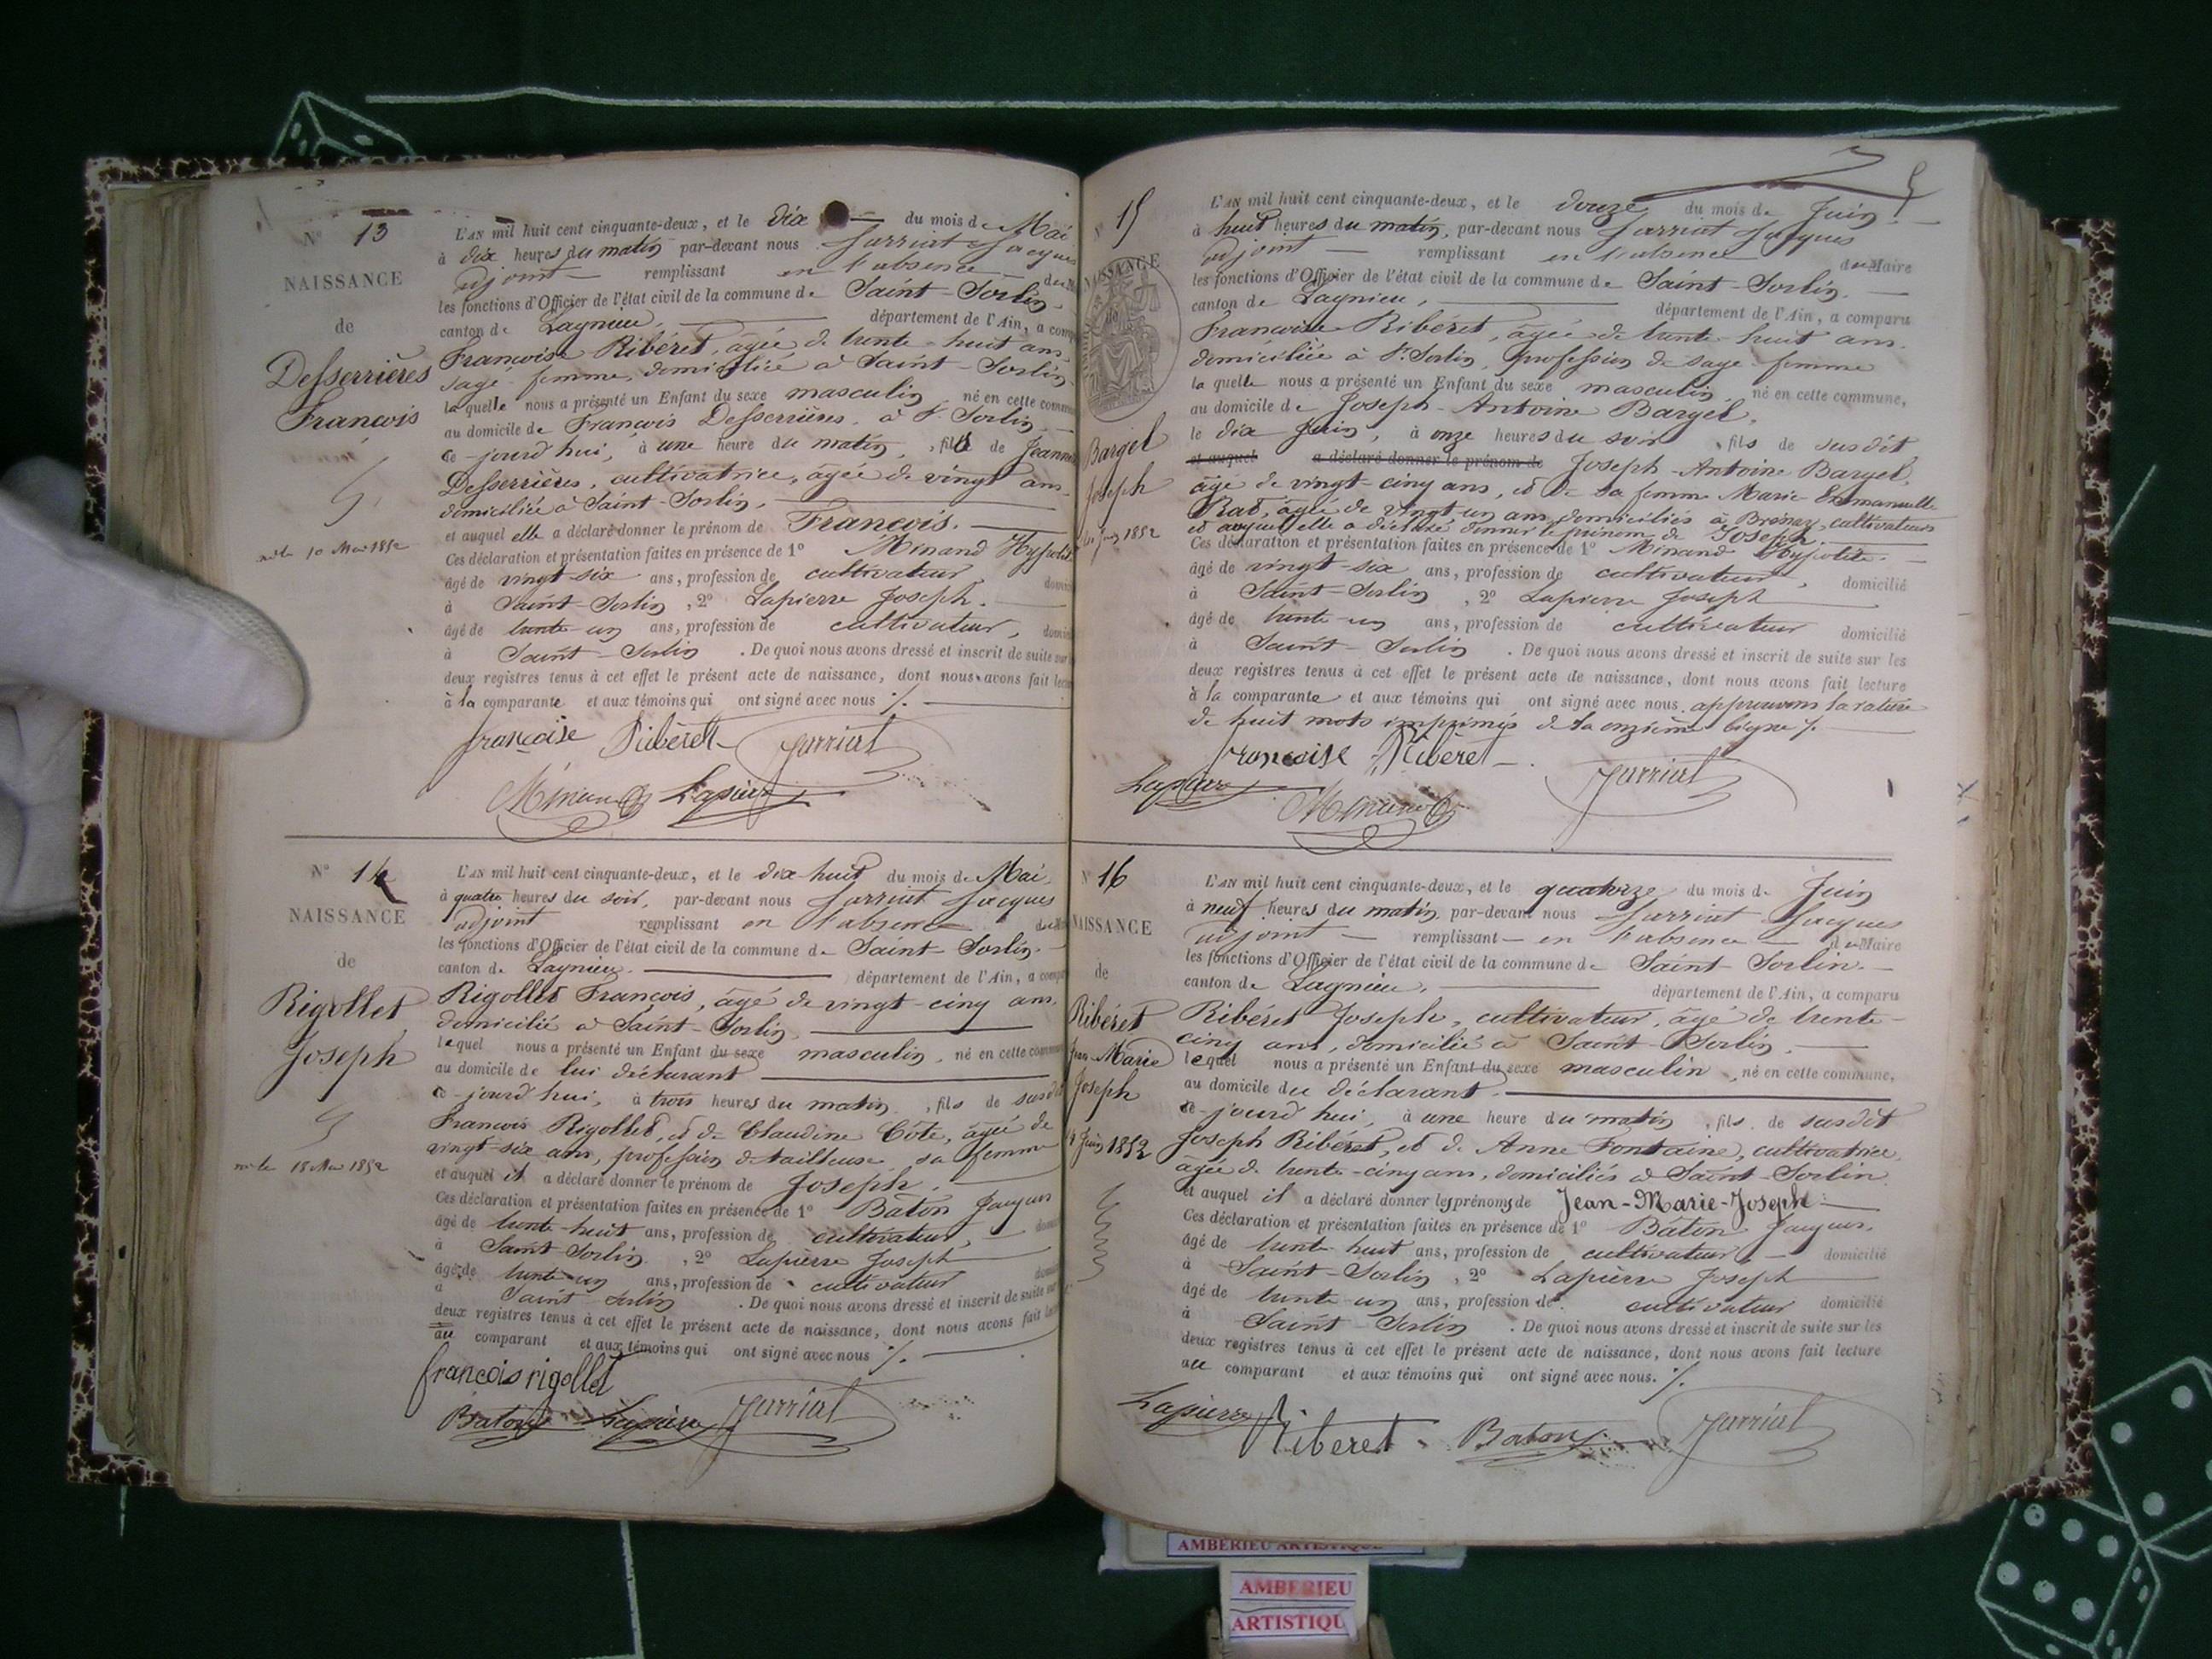 N° 13
NAISSANCE
de
Desserrières
François
né le 10 Mai 1852
L'AN mil huit cent cinquante-deux, et le dix du mois de Mai
à dix heures du matin par-devant nous Jarriat Jacques
adjoint remplissant en l'absence du
les fonctions d'Officier de l'état civil de la commune de Saint-Sorlin
canton de Lagnieu, département de l'Ain, a comp
Françoise Ribéret, âgée de trente-huit ans
sage-femme, domiciliée à Saint-Sorlin
laquelle nous a présenté un Enfant du sexe masculin, né en cette comm
au domicile de François Desserrières, à St Sorlin
ce-jourd'hui, à une heure du matin, fils de Jeanne
Desserrières, cultivatrice, âgée de vingt ans
domiciliée à Saint-Sorlin,
et auquel elle a déclaré donner le prénom de François.
Ces déclaration et présentation faites en présence de 1° Minand Hyppolite
âgé de vingt-six ans, profession de cultivateur, domi
à Saint-Sorlin, 2° Lapierre Joseph.
âgé de trente-un ans, profession de cultivateur, domi
à Saint-Sorlin. De quoi nous avons dressé et inscrit de suite sur
deux registres tenus à cet effet le présent acte de naissance, dont nous avons fait lect
à la comparante et aux témoins qui ont signé avec nous ./.
françoise Ribéret Jarriat
Minand Lapierre
N° 14
NAISSANCE
de
Rigollet
Joseph
né le 18 Mai 1852
L'AN mil huit cent cinquante-deux, et le dix-huit du mois de Mai
à quatre heures du soir, par-devant nous Jarriat Jacques
adjoint remplissant en l'absence du
les fonctions d'Officier de l'état civil de la commune de Saint-Sorlin.
canton de Lagnieu. département de l'Ain, a comp
Rigollet François, âgé de vingt-cinq ans,
domicilié à Saint-Sorlin,
lequel nous a présenté un Enfant du sexe masculin, né en cette comm
au domicile de lui déclarant
ce-jourd'hui, à trois heures du matin, fils de susdit
François Rigollet, et de Claudine Côte, âgée de
vingt-six ans, profession de tailleuse sa femme
et auquel il a déclaré donner le prénom de Joseph.
Ces déclaration et présentation faites en présence de 1° Baton Jacques
âgé de trente-huit ans, profession de cultivateur, domi
à Saint-Sorlin, 2° Lapierre Joseph
âgé de trente-un ans, profession de cultivateur domi
à Saint-Sorlin. De quoi nous avons dressé et inscrit de suite sur
deux registres tenus à cet effet le présent acte de naissance, dont nous avons fait lect
au comparant et aux témoins qui ont signé avec nous ./.
françois rigollet
Baton Lapierre Jarriat
N° 15
NAISSANCE
de
Bargel
Joseph
Juin 1852
L'AN mil huit cent cinquante-deux, et le douze du mois de Juin
à huit heures du matin, par-devant nous Jarriat Jacques
adjoint remplissant en l'absence du Maire
les fonctions d'Officier de l'état civil de la commune de Saint-Sorlin.
canton de Lagnieu, département de l'Ain, a comparu
Françoise Ribéret, âgée de trente-huit ans.
domiciliée à St. Sorlin, profession de sage-femme
laquelle nous a présenté un Enfant du sexe masculin, né en cette commune,
au domicile de Joseph-Antoine Bargel.
le dix Juin, à onze heures du soir, fils de susdit
et auquel a déclaré donner le prénom de Joseph-Antoine Bargel,
âgé de vingt-cinq ans, et de sa femme Marie Emmanuelle
Rat, âgée de vingt-un ans, domiciliés à Brénaz, cultivateurs
et auquel elle a déclaré donner le prénom de Joseph.
Ces déclaration et présentation faites en présence de 1° Minand Hypolite.
âgé de vingt-six ans, profession de cultivateur, domicilié
à Saint-Sorlin, 2° Lapierre Joseph
âgé de trente-un ans, profession de cultivateur domicilié
à Saint-Sorlin. De quoi nous avons dressé et inscrit de suite sur les
deux registres tenus à cet effet le présent acte de naissance, dont nous avons fait lecture
à la comparante et aux témoins qui ont signé avec nous. approuvons la rature
de huit mots imprimés de la onzième ligne ./.
françoise Ribéret Jarriat
Lapierre Minand
N° 16
NAISSANCE
de
Ribéret
Jean-Marie
Joseph
Juin 1852
L'AN mil huit cent cinquante-deux, et le quatorze du mois de Juin
à neuf heures du matin, par-devant nous Jarriat Jacques
adjoint remplissant en l'absence du Maire
les fonctions d'Officier de l'état civil de la commune de Saint-Sorlin.
canton de Lagnieu, département de l'Ain, a comparu
Ribéret Joseph, cultivateur, âgé de trente-
cinq ans, domicilié à Saint-Sorlin,
lequel nous a présenté un Enfant du sexe masculin, né en cette commune,
au domicile du déclarant.
ce-jourd'hui, à une heure du matin, fils de susdit
Joseph Ribéret, et de Anne Fontaine, cultivatrice,
âgée de trente-cinq ans, domiciliés à Saint-Sorlin
et auquel il a déclaré donner les prénoms de Jean-Marie-Joseph.
Ces déclaration et présentation faites en présence de 1° Baton Jacques.
âgé de trente-huit ans, profession de cultivateur domicilié
à Saint-Sorlin, 2° Lapierre Joseph
âgé de trente-un ans, profession de cultivateur domicilié
à Saint-Sorlin. De quoi nous avons dressé et inscrit de suite sur les
deux registres tenus à cet effet le présent acte de naissance, dont nous avons fait lecture
au comparant et aux témoins qui ont signé avec nous. ./.
Lapierre Riberet Baton Jarriat
AMBERIEU ARTISTIQUE
AMBERIEU
ARTISTIQU